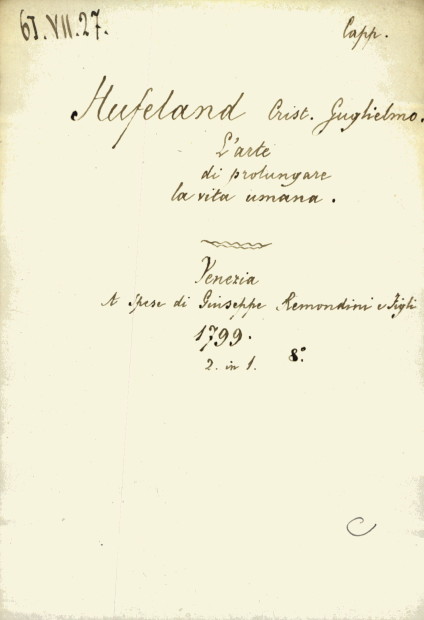 61.VII.27.
Capp.
Hufeland Crist. Guglielmo.
L'arte
di prolungare
la vita umana.
Venezia
A spese di Giuseppe Remondini e Figli
1799.
2. in 1. 8.º